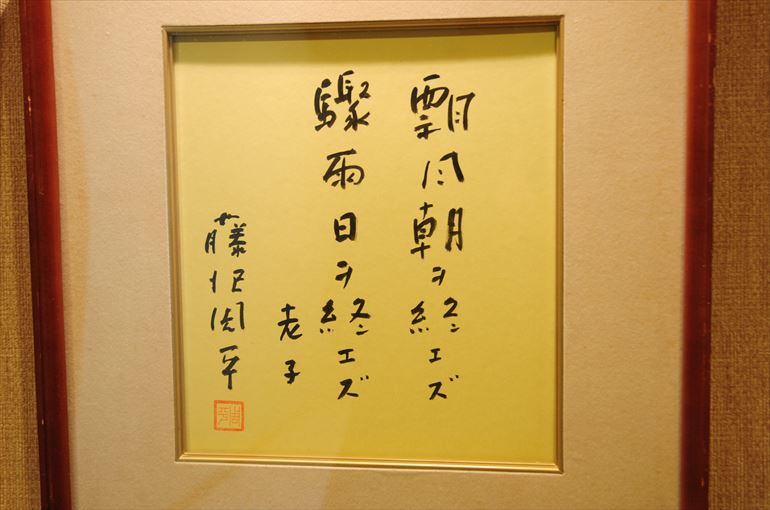 飄風朝ヲ終エズ
驟雨日ヲ終エズ
老子
藤沢周平
周平